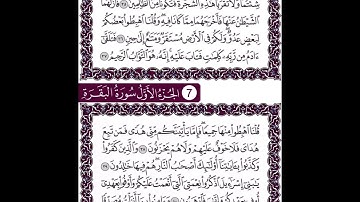 شِئْتُمَا وَلَا تَقْرَبَا هَٰذِهِ الشَّجَرَةَ فَتَكُونَا مِنَ الظَّالِمِينَ ۝٣٥ فَأَزَلَّهُمَا
الشَّيْطَانُ عَنْهَا فَأَخْرَجَهُمَا مِمَّا كَانَا فِيهِ وَقُلْنَا اهْبِطُوا بَعْضُكُمْ
لِبَعْضٍ عَدُوٌّ وَلَكُمْ فِي الْأَرْضِ مُسْتَقَرٌّ وَمَتَاعٌ إِلَىٰ حِينٍ ۝٣٦ فَتَلَقَّىٰ
آدَمُ مِنْ رَبِّهِ كَلِمَاتٍ فَتَابَ عَلَيْهِ إِنَّهُ هُوَ التَّوَّابُ الرَّحِيمُ ۝٣٧
الجُزْءُ الأَوَّلُ 7 سُورَةُ البَقَرَةِ
قُلْنَا اهْبِطُوا مِنْهَا جَمِيعًا فَإِمَّا يَأْتِيَنَّكُمْ مِنِّي هُدًى فَمَنْ تَبِعَ
هُدَايَ فَلَا خَوْفٌ عَلَيْهِمْ وَلَا هُمْ يَحْزَنُونَ ۝٣٨ وَالَّذِينَ كَفَرُوا
وَكَذَّبُوا بِآيَاتِنَا أُولَٰئِكَ أَصْحَابُ النَّارِ هُمْ فِيهَا خَالِدُونَ ۝٣٩
يَا بَنِي إِسْرَائِيلَ اذْكُرُوا نِعْمَتِيَ الَّتِي أَنْعَمْتُ عَلَيْكُمْ وَأَوْفُوا بِعَهْدِي